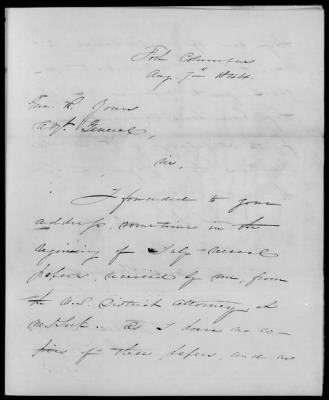 Fort Columbus
Aug. 7th 1844.
Genl. R. Jones
Adjt. General,
Sir,
I forwarded to your
address, sometime in the
beginning of July several
papers, received by me from
the U.S. District Attorney, at
N. York. As I have no co-
pies of these papers, and as